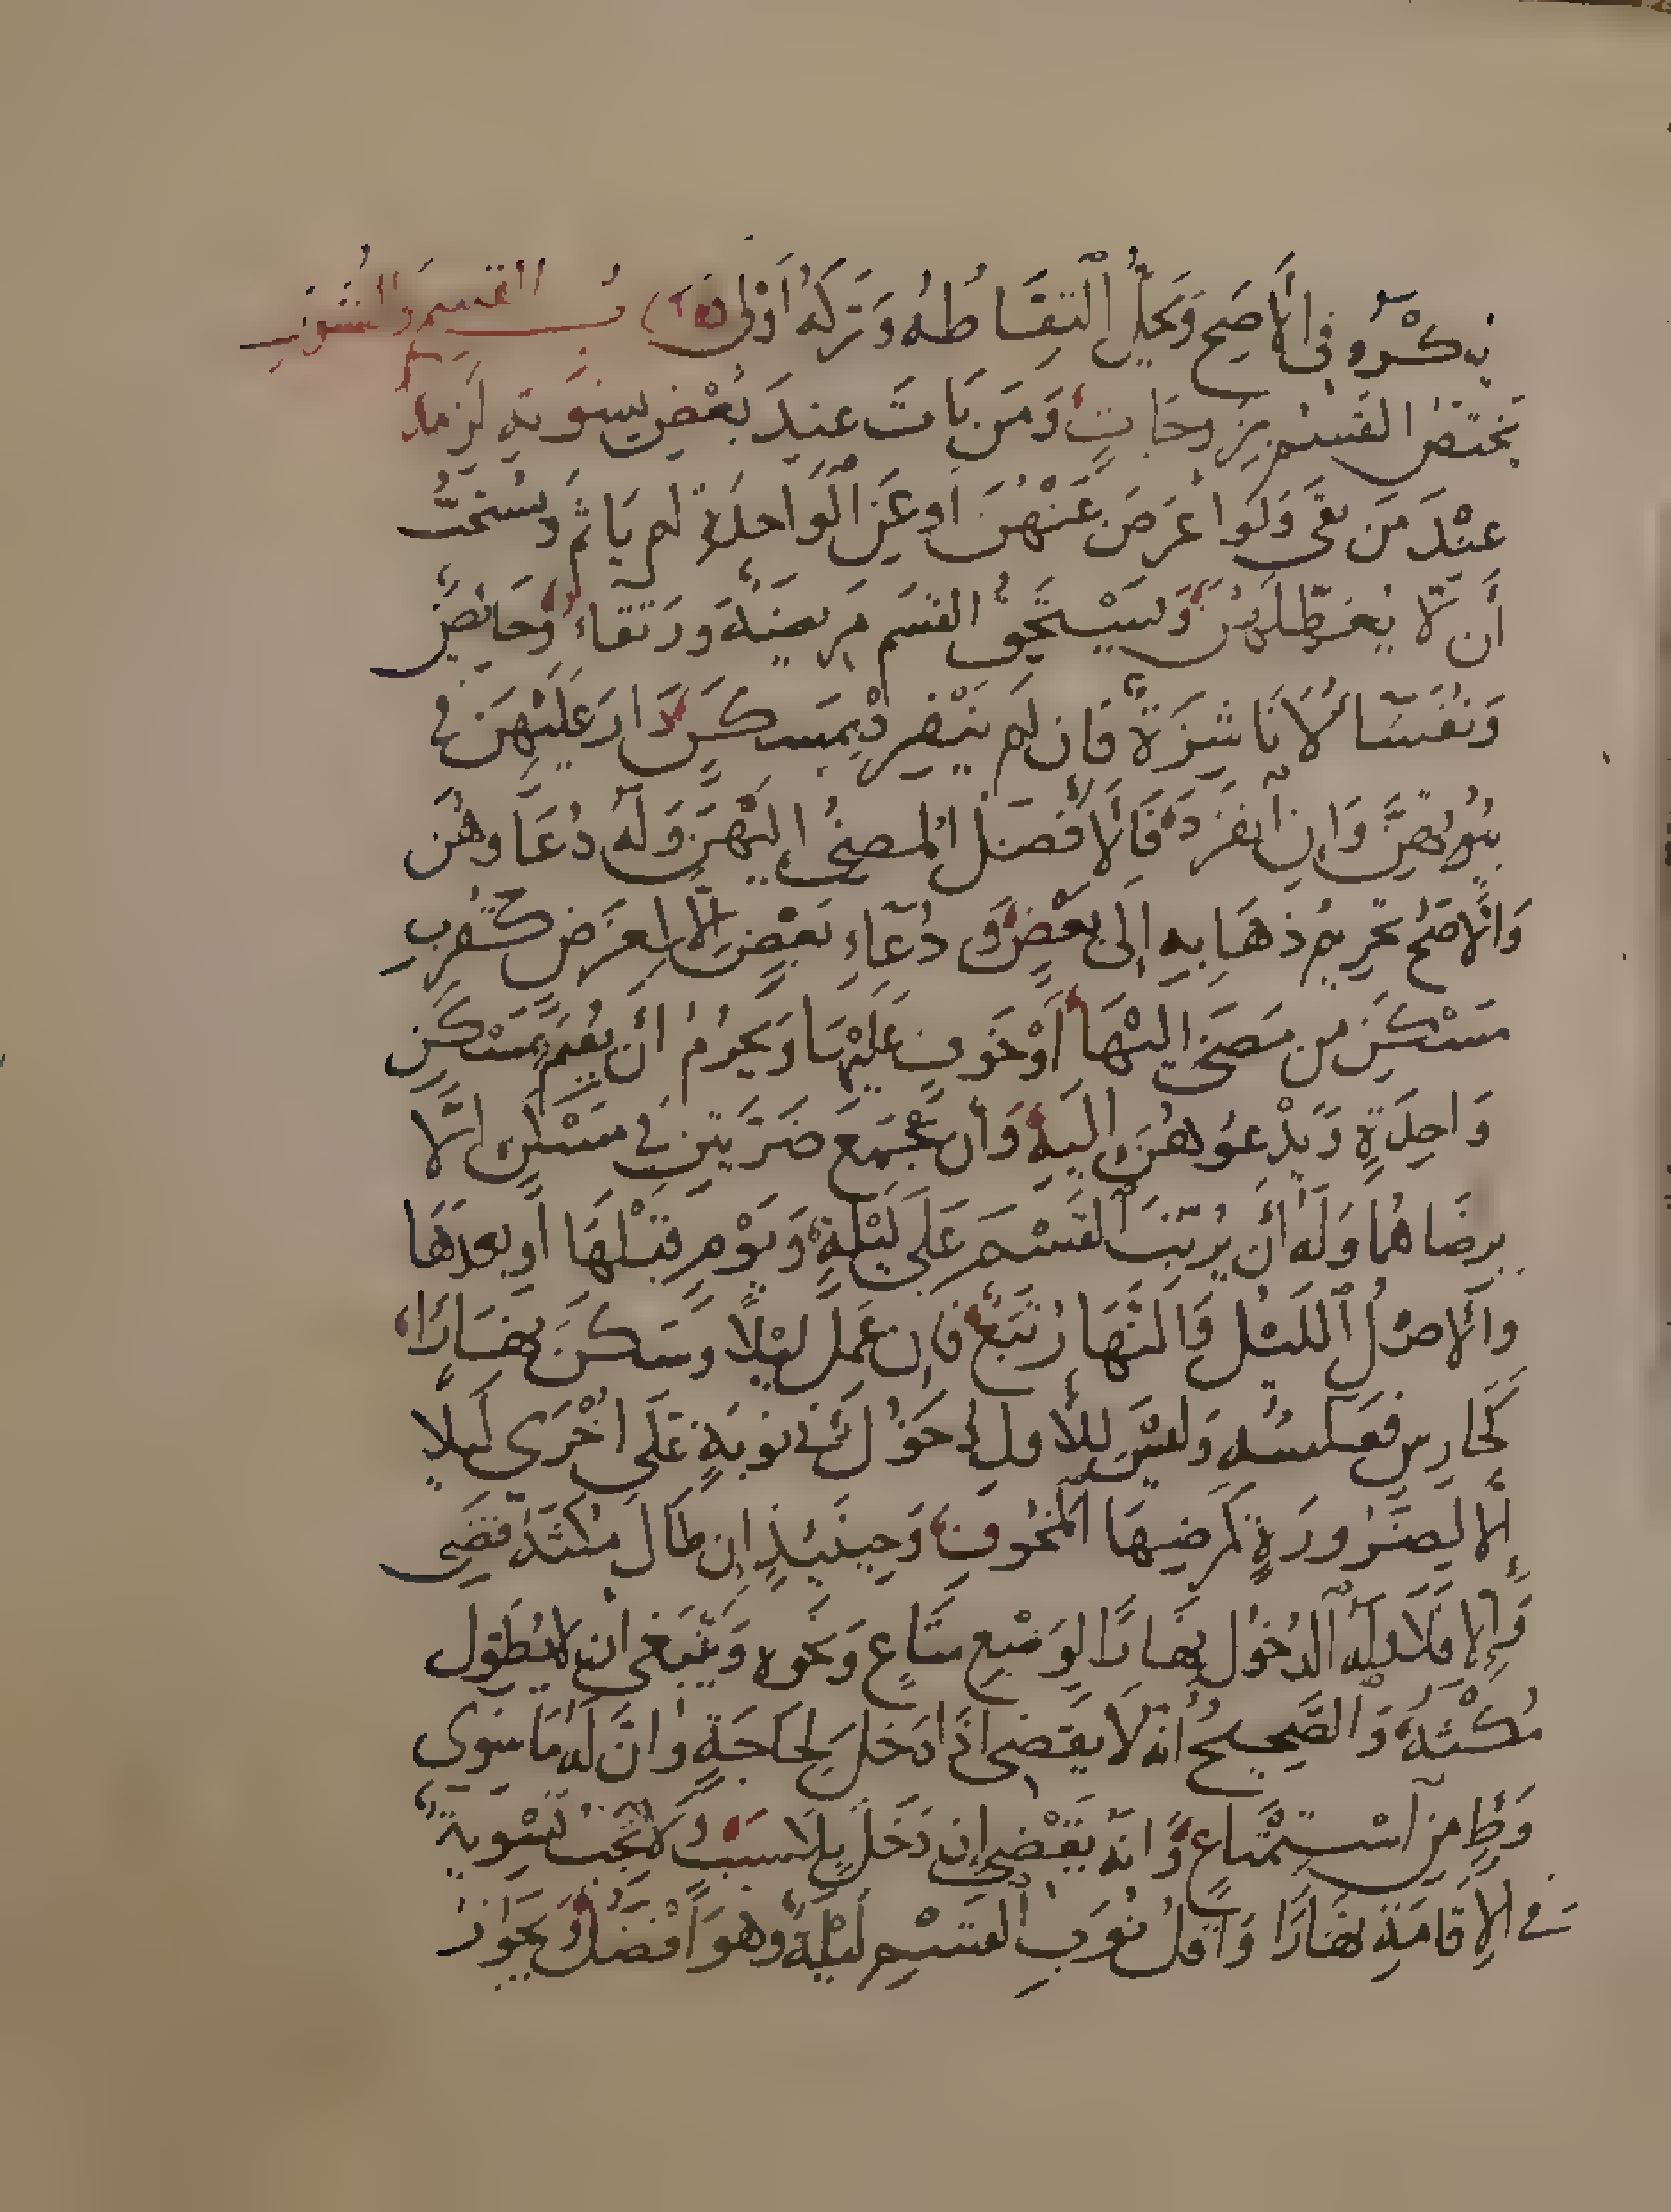 يكره في الأصح ويحل التقاطه وتركه أولى كتاب القسم والنشوز
يختص القسم بزوجات ومن بات عند بعض نسوته لزمه
عند من بقى ولو اعرض عنهن او عن الواحدة لم يأثم ويستحب
أن لا يعطلهن ويستحق القسم مريضة ورتقاء وحائض
ونفساء لا ناشزة فان لم ينفرد بمسكن دار عليهن في
بيوتهن وإن انفرد فالأفضل المضي إليهن وله دعاوهن
والأصح تحريم ذهابه إلى بعض و دعاء بعض إلا لغرض كقرب
مسكن من مضى إليها أو خوف عليها ويحرم أن يقيم بمسكن
واحدة ويدعوهن إليه وأن يجمع ضرتين في مسكن إلا
برضاهما وله أن يرتب القسم على ليلة ويوم قبلها أو بعدها
والأصل الليل والنهار تبع فإن عمل ليلا وسكن نهارا
كحارس فعكسه وليس للأول دخول في نوبة على أخرى ليلا
إلا لضرورة كمرضها المخوف وحينئذ إن طال مكثه قضى
وإلا فلا وله الدخول نهارا لوضع متاع ونحوه وينبغي أن لا يطول
مكثه والصحيح أنه لا يقضي إذا دخل لحاجة وأن له ما سوى
وطئ من استمتاع وأنه يقضي إن دخل بلا سبب ولا تجب تسوية
في الإقامة نهارا وأقل نوب القسم ليلة وهو أفضل ويجوز